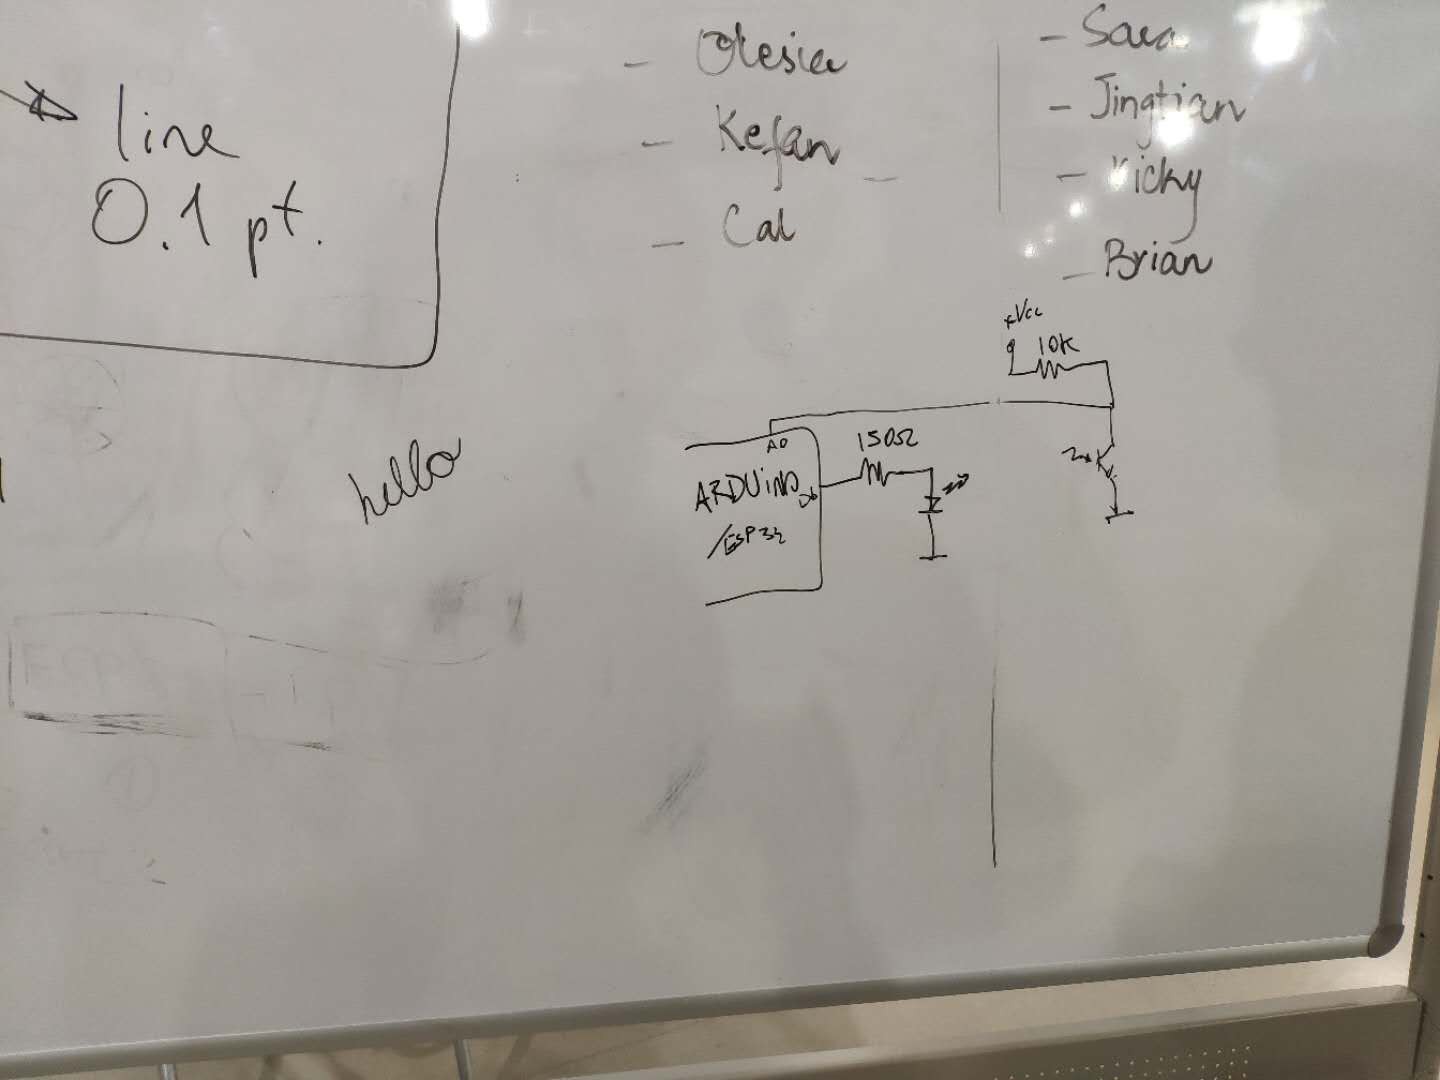 line
0.1 pt.
- Olesia
- Kefan
- Cal
- Sara
- Jingtian
- Vicky
- Brian
hello
+Vcc
10K
A0
150Ω
ARDUINO
D6
/ESP32